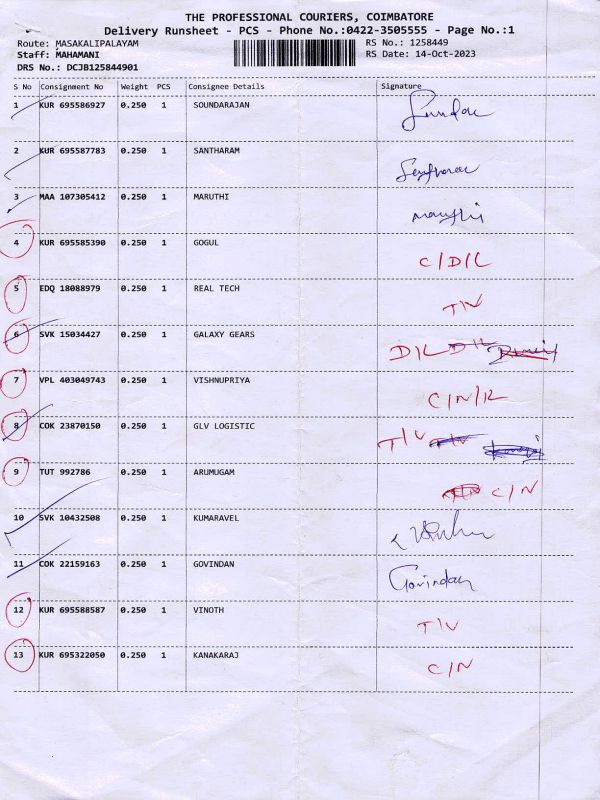 THE PROFESSIONAL COURIERS, COIMBATORE
Delivery Runsheet - PCS - Phone No.:0422-3505555 - Page No.:1
Route: MASAKALIPALAYAM RS No.: 1258449
Staff: MAHAMANI RS Date: 14-Oct-2023
DRS No.: DCJB125844901
S No Consignment No Weight PCS Consignee Details Signature
1 KUR 695586927 0.250 1 SOUNDARAJAN
2 KUR 695587783 0.250 1 SANTHARAM
3 MAA 107305412 0.250 1 MARUTHI
4 KUR 695585390 0.250 1 GOGUL C/D/L
5 EDQ 18088979 0.250 1 REAL TECH T/V
6 SVK 15034427 0.250 1 GALAXY GEARS D/L D/L
7 VPL 403049743 0.250 1 VISHNUPRIYA C/N/R
8 COK 23870150 0.250 1 GLV LOGISTIC T/V T/V
9 TUT 992786 0.250 1 ARUMUGAM C/N
10 SVK 10432508 0.250 1 KUMARAVEL
11 COK 22159163 0.250 1 GOVINDAN Govindan
12 KUR 695588587 0.250 1 VINOTH T/V
13 KUR 695322050 0.250 1 KANAKARAJ C/N